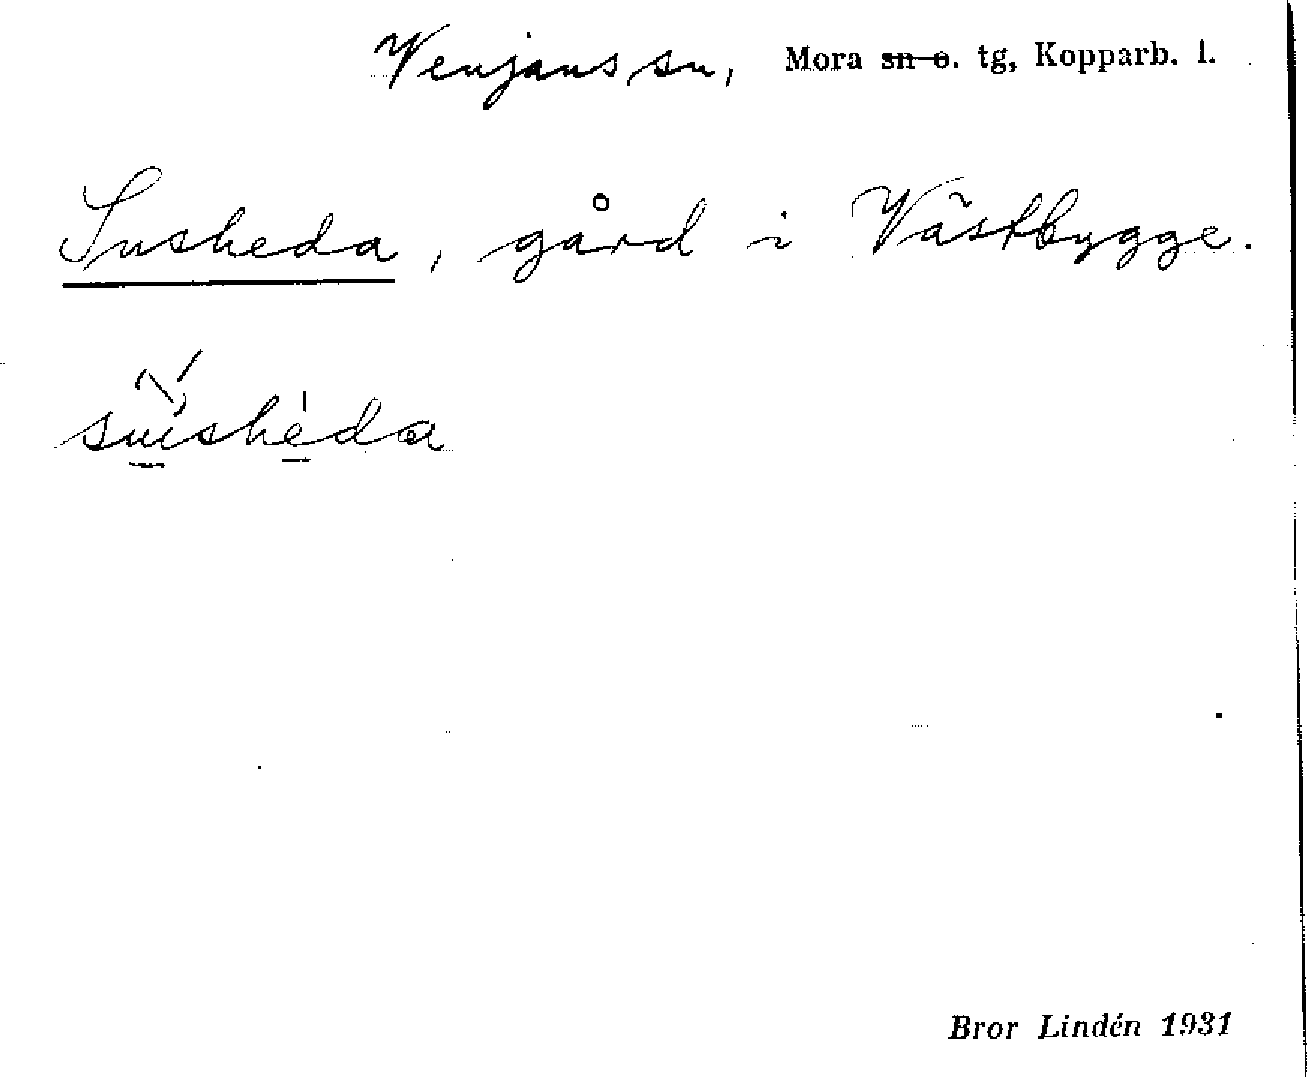 Venjans sn, Mora sn o. tg, Kopparb. l.
Susheda, gård i Västbygge.
Bror Lindén 1931